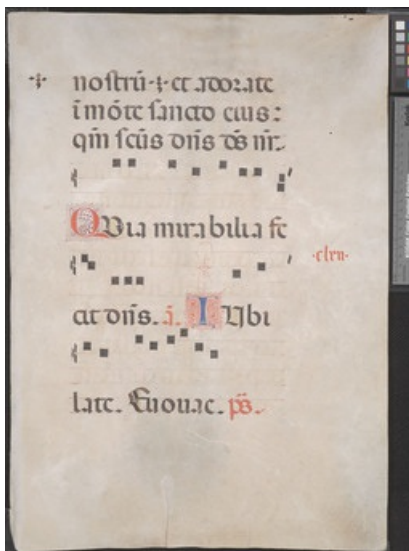 nostrū · et adorate
ī mōte sancto eius:
qm̄ scūs dn̄s d̄s nr̄.
Quia mirabilia fe
·clxv·
cit dn̄s. ā. Iubi
late. Euouae. ps̄.